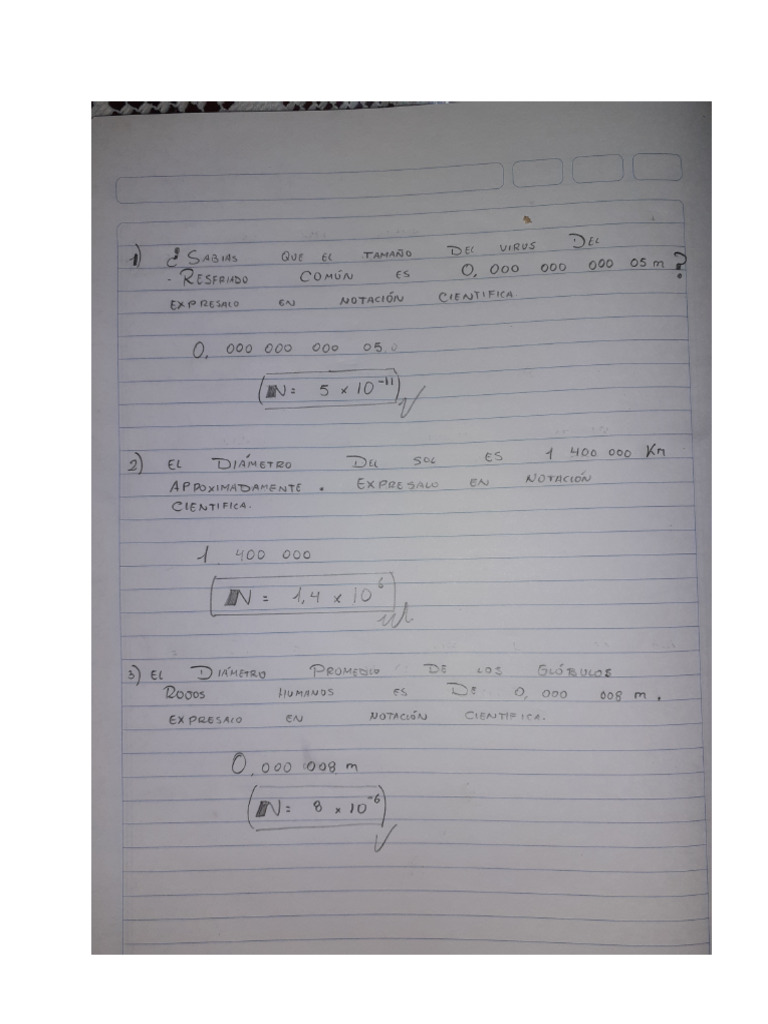 1) ¿SABIAS QUE EL TAMAÑO DEL VIRUS DEL
RESFRIADO COMÚN ES 0, 000 000 000 05 m?
EXPRESALO EN NOTACIÓN CIENTIFICA
0, 000 000 000 05
N = 5 x 10⁻¹¹
2) EL DIÁMETRO DEL SOL ES 1 400 000 Km
APROXIMADAMENTE. EXPRESALO EN NOTACIÓN
CIENTIFICA.
1 400 000
N = 1,4 x 10⁶
3) EL DIÁMETRO PROMEDIO DE LOS GLÓBULOS
ROJOS HUMANOS ES DE 0, 000 008 m.
EXPRESALO EN NOTACIÓN CIENTIFICA.
0,000 008 m
N = 8 x 10⁻⁶